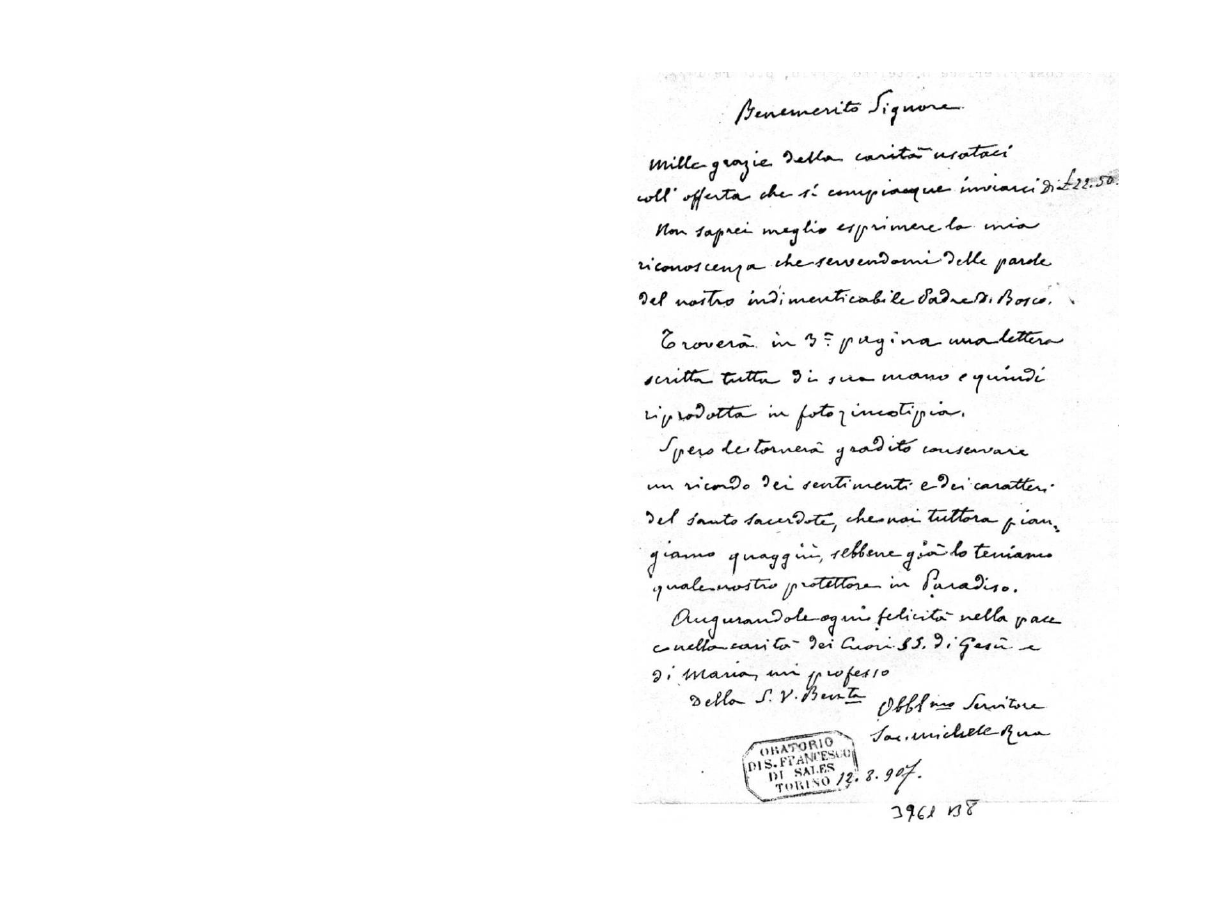 Benemerito Signore
Mille grazie della carità usataci
coll' offerta che si compiacque inviarci di £22.50.
Non saprei meglio esprimere la mia
riconoscenza che servendomi delle parole
del nostro indimenticabile Padre D. Bosco.
Troverà in 3ª pagina una lettera
scritta tutta di sua mano e quindi
riprodotta in fotozincotipia.
Spero le tornerà gradito conservare
un ricordo dei sentimenti e dei caratteri
del santo sacerdote, che noi tuttora pian-
giamo quaggiù, sebbene già lo teniamo
quale nostro protettore in Paradiso.
Augurandole ogni felicità nella pace
e nella carità dei Cuori SS. di Gesù e
di Maria, mi professo
Della S. V. Benta
Obblmo Servitore
Sac. Michele Rua
ORATORIO
DI S. FRANCESCO
DI SALES
TORINO
12.8.907.
3961 B8